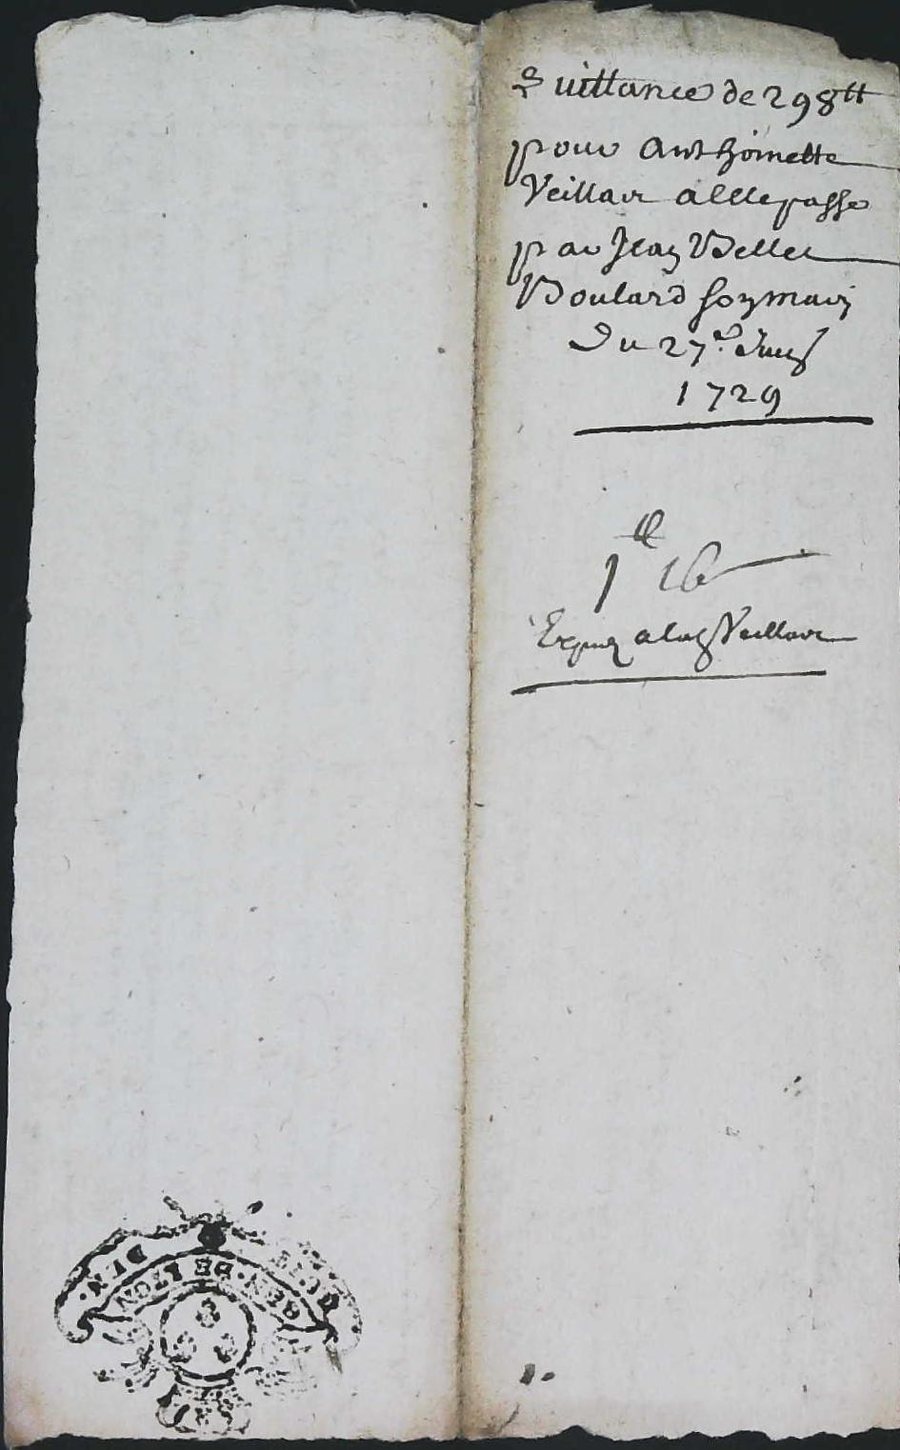 quittance de 298tt
pour Anthoinette
Veillar a elle passé
par Jean Vellet
Boulard son mary
Du 27e Juin
1729
1tt 16
Expié a lad Veillar
DEN.
GEN. DE LION